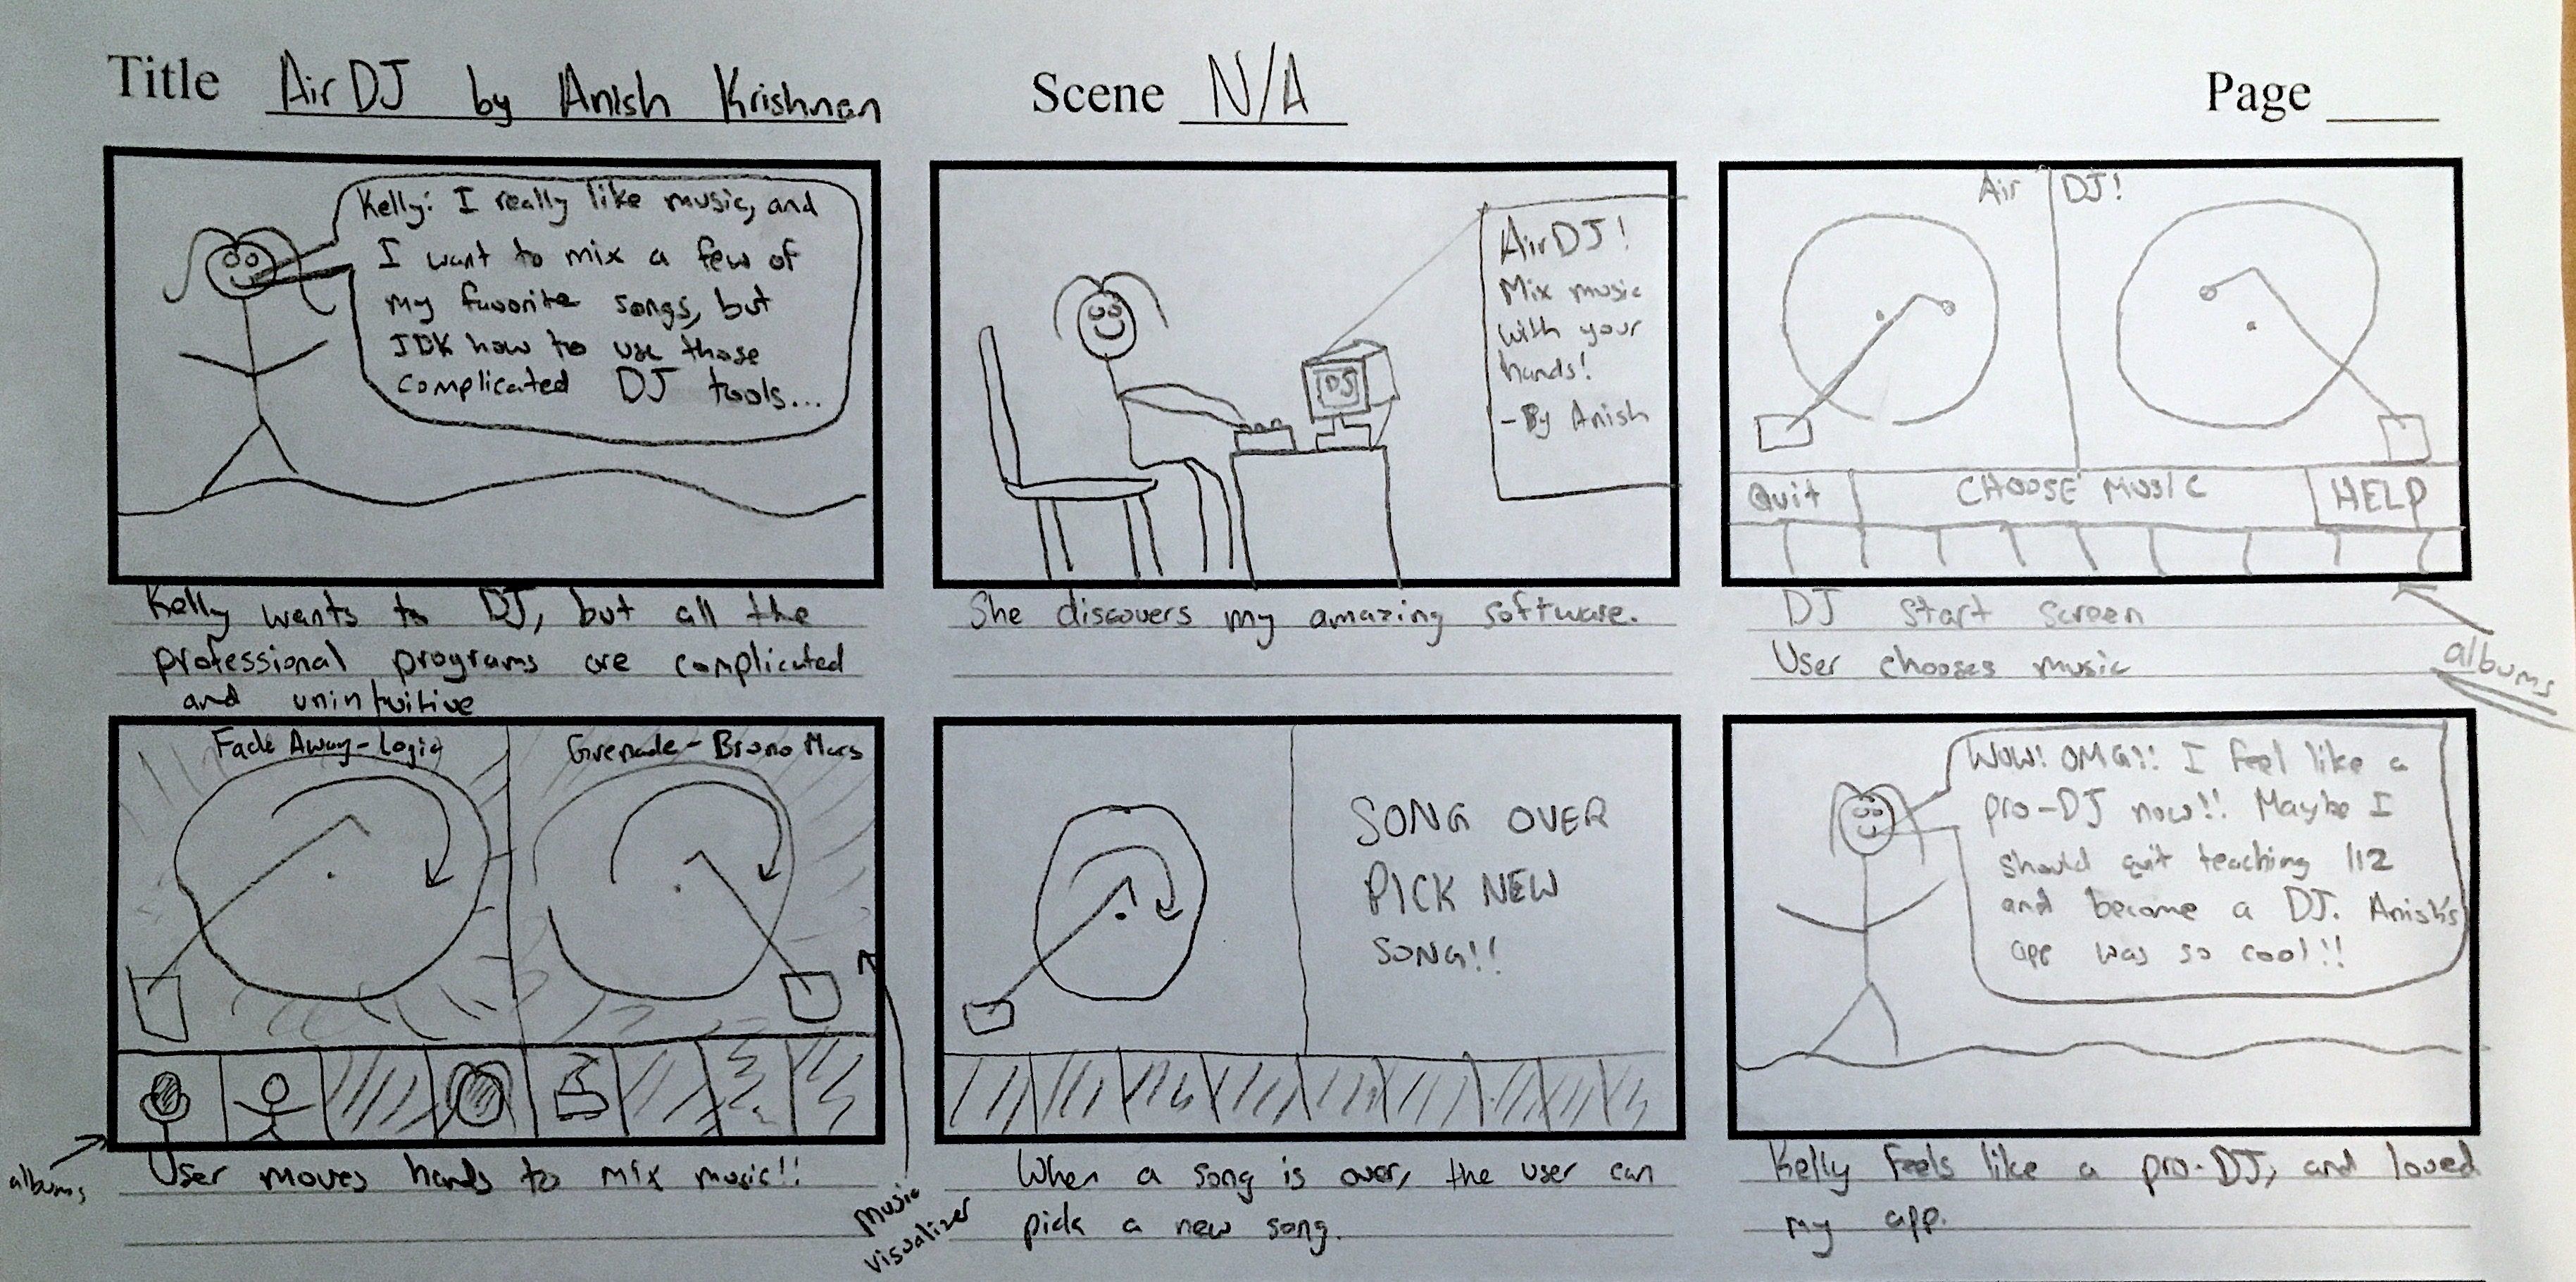 Title Air DJ by Anish Krishnan
Scene N/A
Page
Kelly: I really like music, and
I want to mix a few of
my favorite songs, but
IDK how to use those
complicated DJ tools...
Kelly wants to DJ, but all the
professional programs are complicated
and unintuitive
DJ
AirDJ!
Mix music
with your
hands!
- By Anish
She discovers my amazing software.
Air DJ!
Quit CHOOSE MUSIC HELP
DJ start screen
User chooses music
albums
Fade Away - Logic
Grenade - Bruno Mars
albums
User moves hands to mix music!!
music
visualizer
SONG OVER
PICK NEW
SONG!!
When a song is over, the user can
pick a new song.
WOW! OMG!! I feel like a
pro-DJ now!! Maybe I
should quit teaching 112
and become a DJ. Anish's
app was so cool!!
Kelly feels like a pro-DJ, and loved
my app.